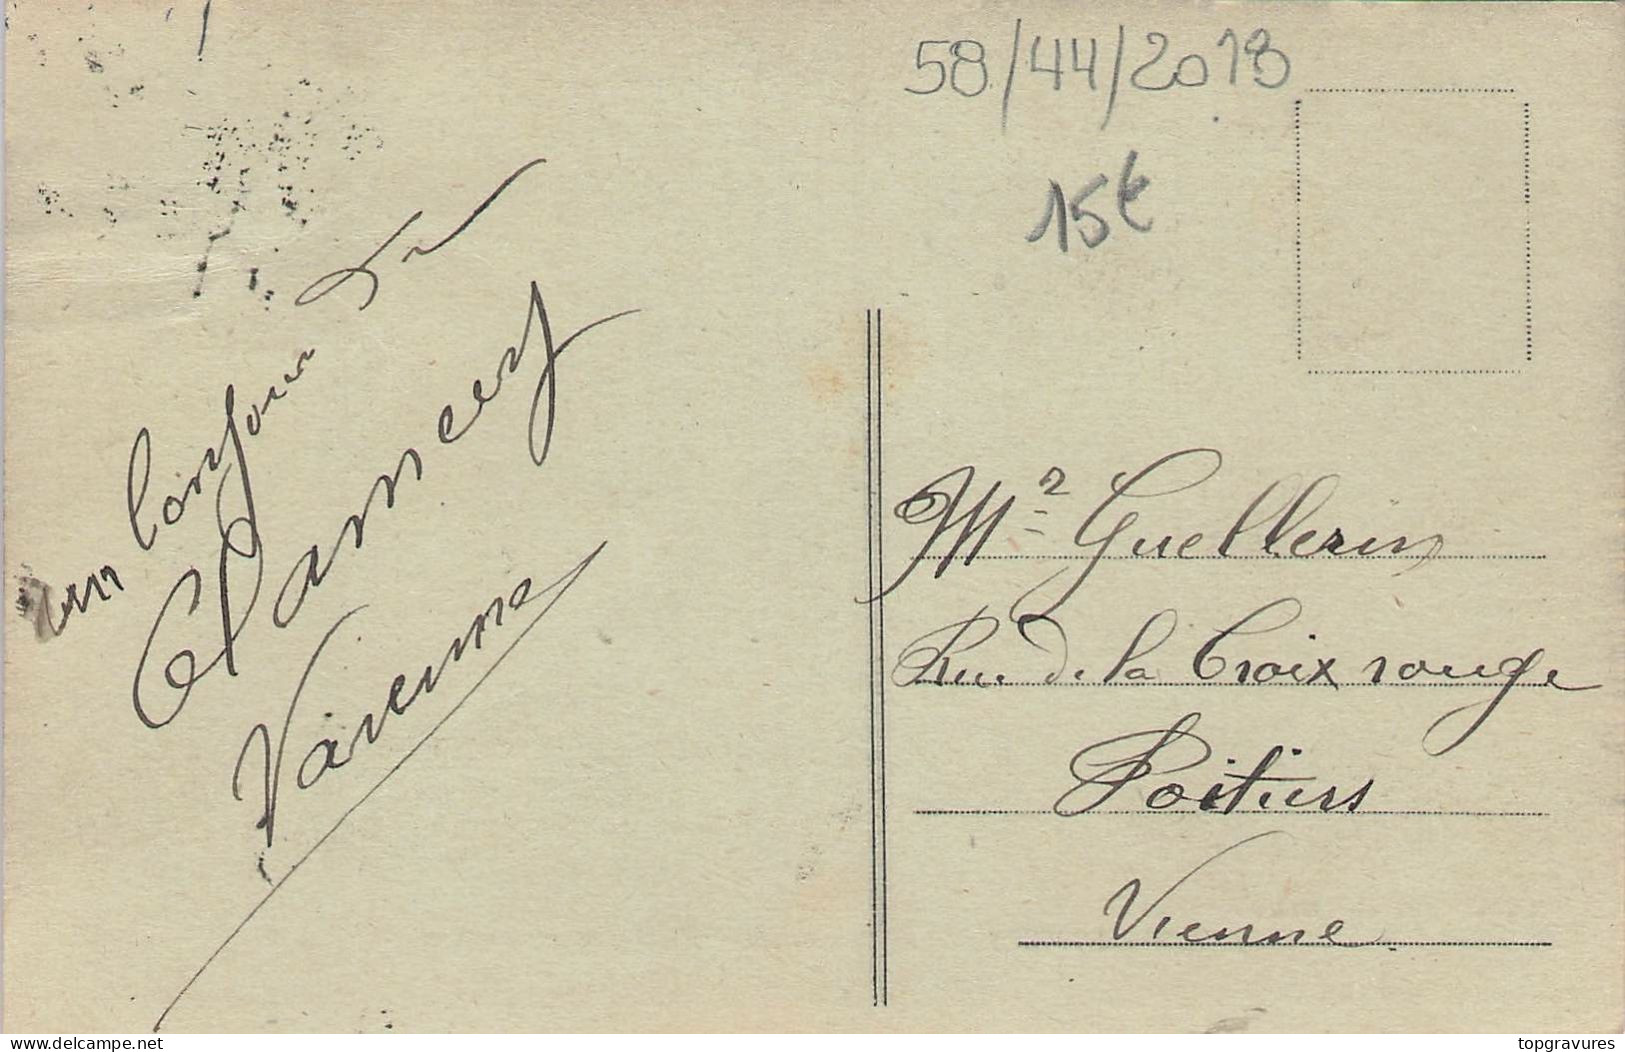 58/44/2013
15€
un bonjour de
Clamecy
Varenne
Mr Guellerin
Rue de la Croix rouge
Poitiers
Vienne
www.delcampe.net
topgravures